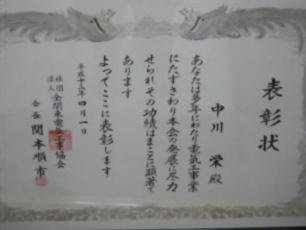 表彰状
中川 栄殿
あなたは多年にわたり電気工事業
にたずさわり本会の発展に尽力
せられその功績はまことに顕著で
あります
よってここに表彰します
平成十三年四月一日
社団法人 全関東電気工事協会
会長 関本順市